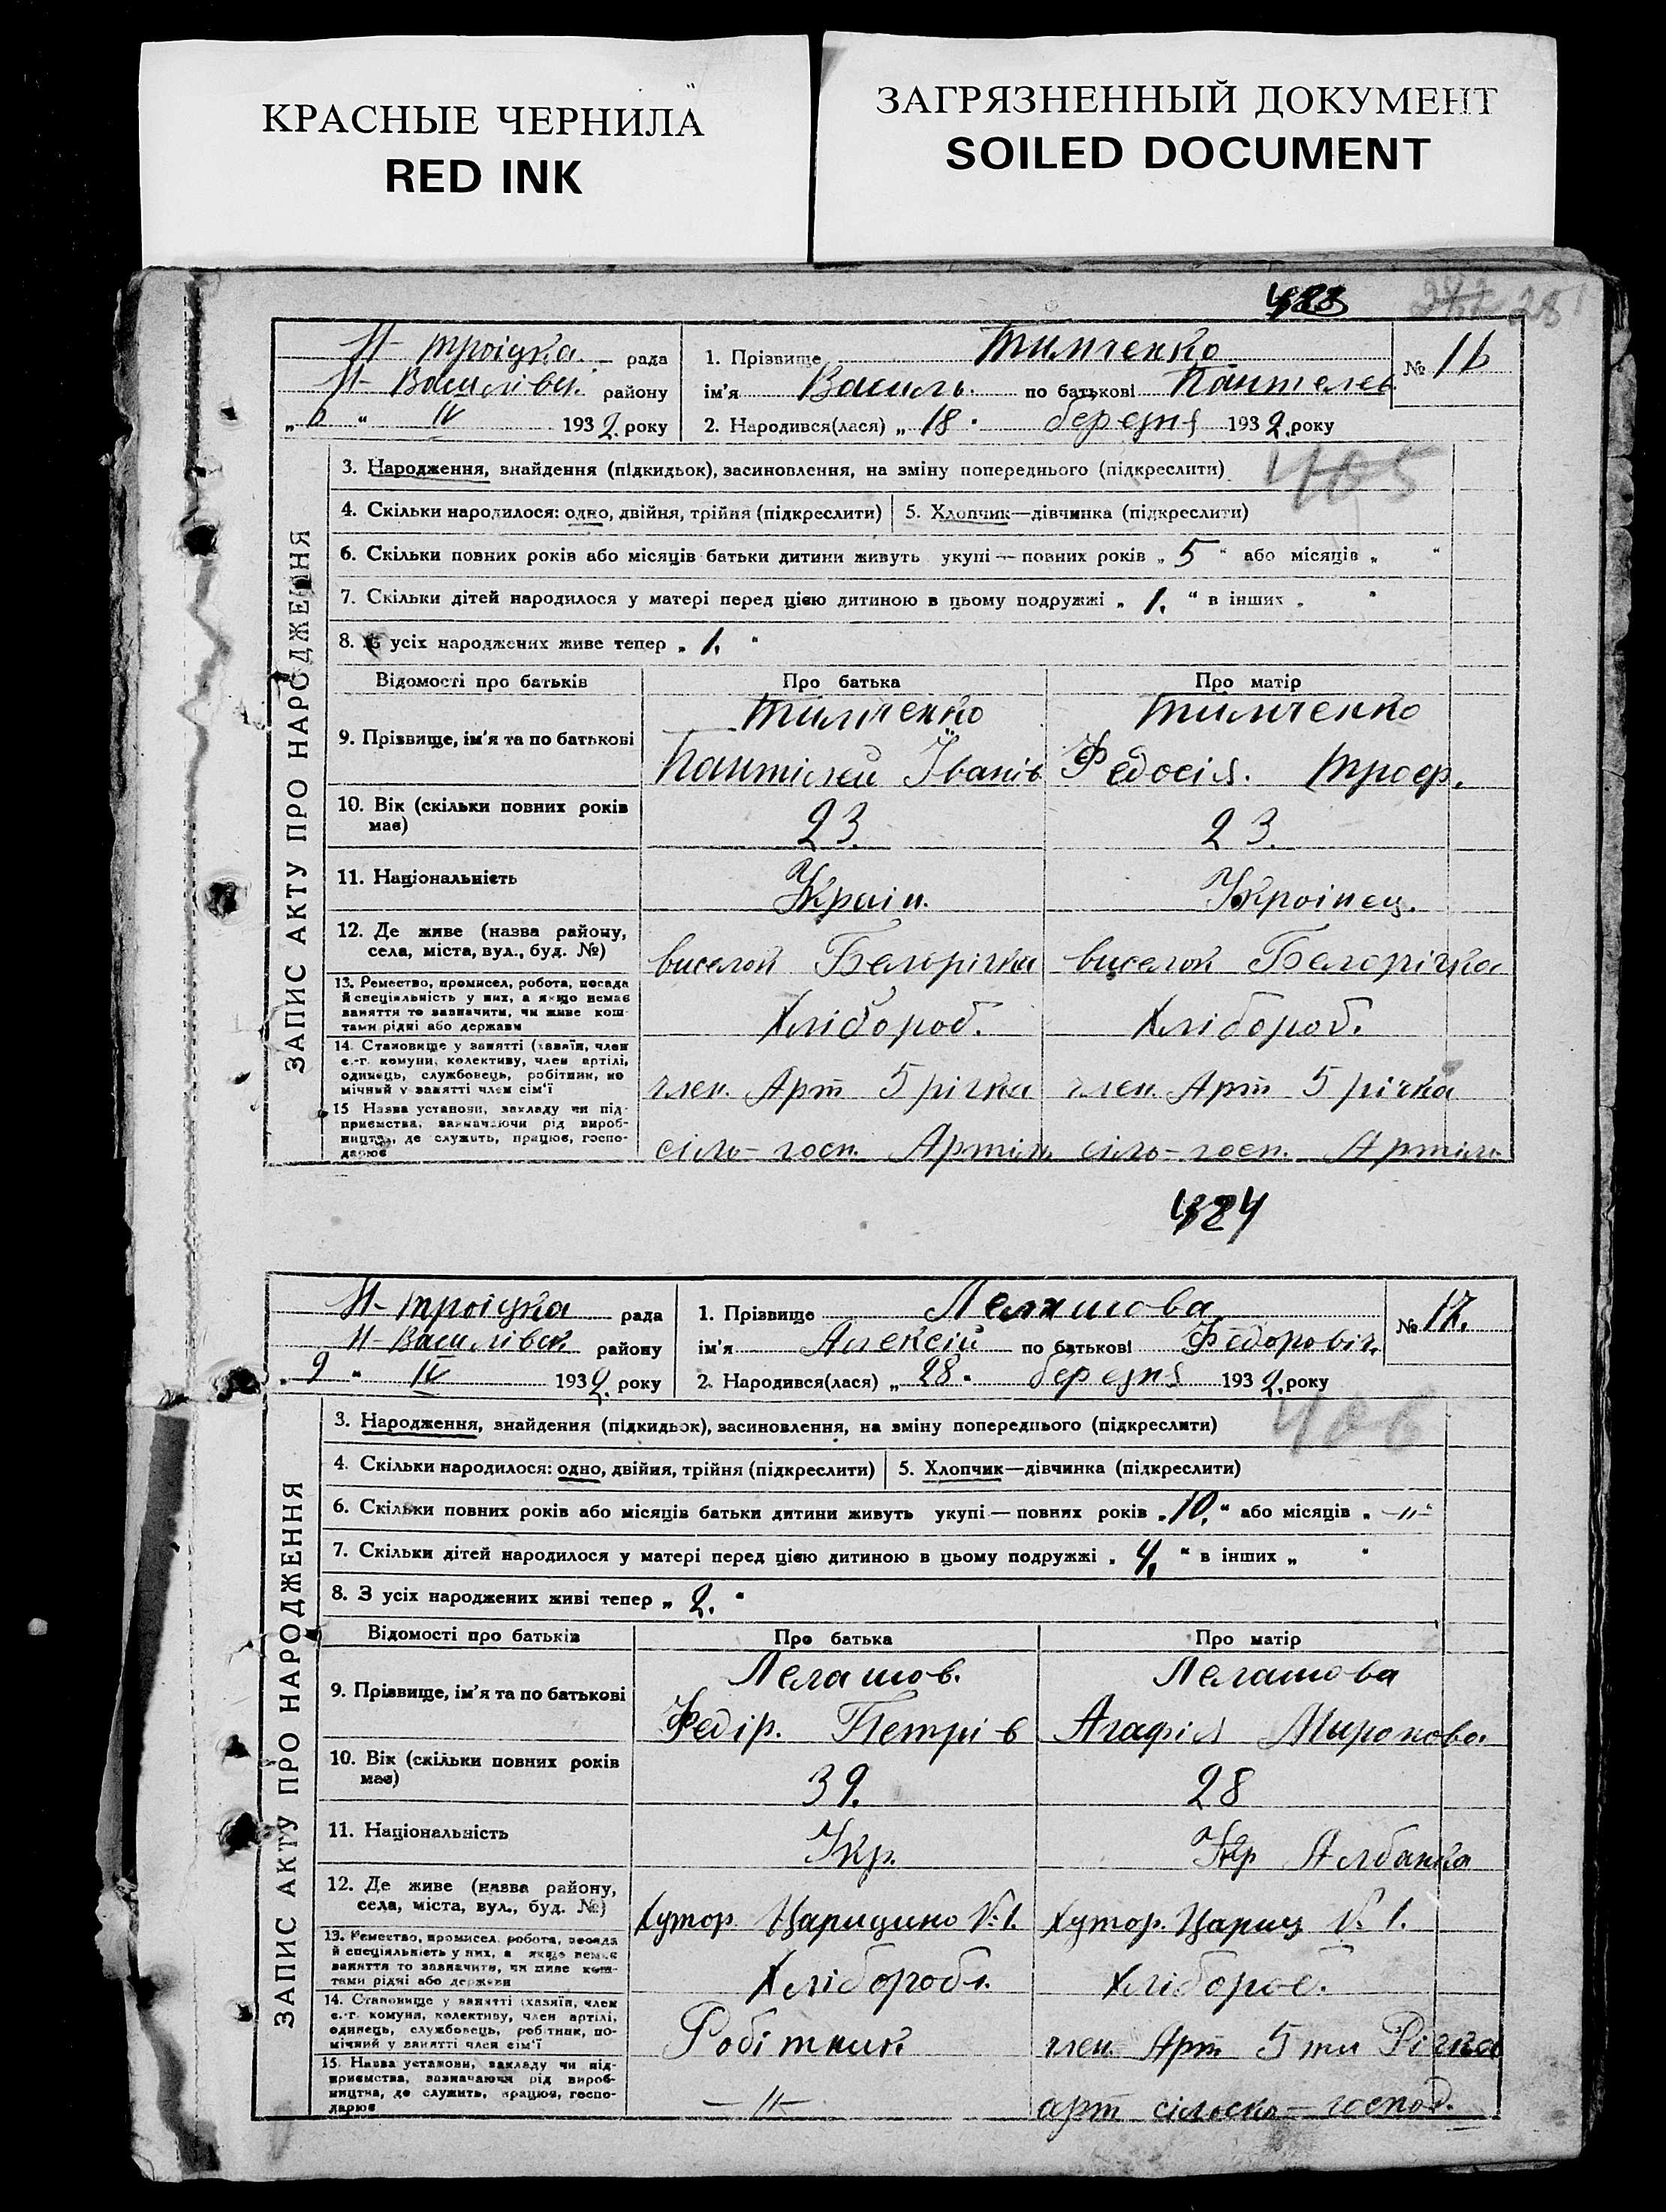 КРАСНЫЕ ЧЕРНИЛА
RED INK
ЗАГРЯЗНЕННЫЙ ДОКУМЕНТ
SOILED DOCUMENT
Н-Троіцка рада
Н-Василівск. району
„6“ IV 1932 року
1. Прізвище Тимченко
ім'я Василь по батькові Пантелев
2. Народився(лася) „18 березня 1932 року
№ 16
ЗАПИС АКТУ ПРО НАРОДЖЕННЯ
3. Народження, знайдення (підкидьок), засиновлення, на зміну попереднього (підкреслити)
405
4. Скільки народилося: одно, двійня, трійня (підкреслити) 5. Хлопчик—дівчинка (підкреслити)
6. Скільки повних років або місяців батьки дитини живуть укупі — повних років „5“ або місяців „ “
7. Скільки дітей народилося у матері перед цією дитиною в цьому подружжі „1.“ в інших „ “
8. З усіх народжених живе тепер „1.“
Відомості про батьків Про батька Про матір
9. Прізвище, ім'я та по батькові
Тимченко Тимченко
Пантілей Іванів Федосія. Троф.
10. Вік (скільки повних років має) 23. 23.
11. Національність Україн. Украінец.
12. Де живе (назва району, села, міста, вул., буд. №) виселок Белорічка виселок Белорічка
13. Ремество, промисел, робота, посада й спеціяльність у них, а якщо немає заняття то зазначити, чи живе коштами рідні або держави Хлібороб. Хлібороб.
14. Становище у занятті (хазяїн, член с.-г. комуни, колективу, член артілі, одинець, службовець, робітник, помічний у занятті член сім'ї член. Арт 5 річка член. Арт 5 річка
15 Назва установи, закладу чи підприємства, зазначаючи рід виробництва, де служить, працює, господарює сіло-госп. Артіль сіло-госп. Артіль
484
Н-Троіцка рада
Н-Василівск району
„9“ IV 1932 року
1. Прізвище Лелашова
ім'я Алексій по батькові Федоровіч.
2. Народився(лася) „28 березня 1932 року
№ 17.
ЗАПИС АКТУ ПРО НАРОДЖЕННЯ
3. Народження, знайдення (підкидьок), засиновлення, на зміну попереднього (підкреслити)
406
4. Скільки народилося: одно, двійня, трійня (підкреслити) 5. Хлопчик—дівчинка (підкреслити)
6. Скільки повних років або місяців батьки дитини живуть укупі — повних років „10.“ або місяців „—//—“
7. Скільки дітей народилося у матері перед цією дитиною в цьому подружжі „4.“ в інших „ “
8. З усіх народжених живі тепер „2.“
Відомості про батьків Про батька Про матір
9. Прізвище, ім'я та по батькові
Лелашов. Лелашова
Федір. Петрів Агафія Миронова.
10. Вік (скільки повних років має) 39. 28
11. Національність Укр. Албанка
12. Де живе (назва району, села, міста, вул., буд. №) Хутор. Царицино №1. Хутор. Цариц № 1.
13. Ремество, промисел, робота, посада й спеціяльність у них, а якщо немає заняття то зазначити, чи живе коштами рідні або держави Хлібороб. Хлібороб.
14. Становище у занятті (хазяїн, член с.-г. комуни, колективу, член артілі, одинець, службовець, робітник, помічний у занятті член сім'ї Робітник член. Арт 5 ти Річка
15. Назва установи, закладу чи підприємства, зазначаючи рід виробництва, де служить, працює, господарює —//— арт сільско-господ.